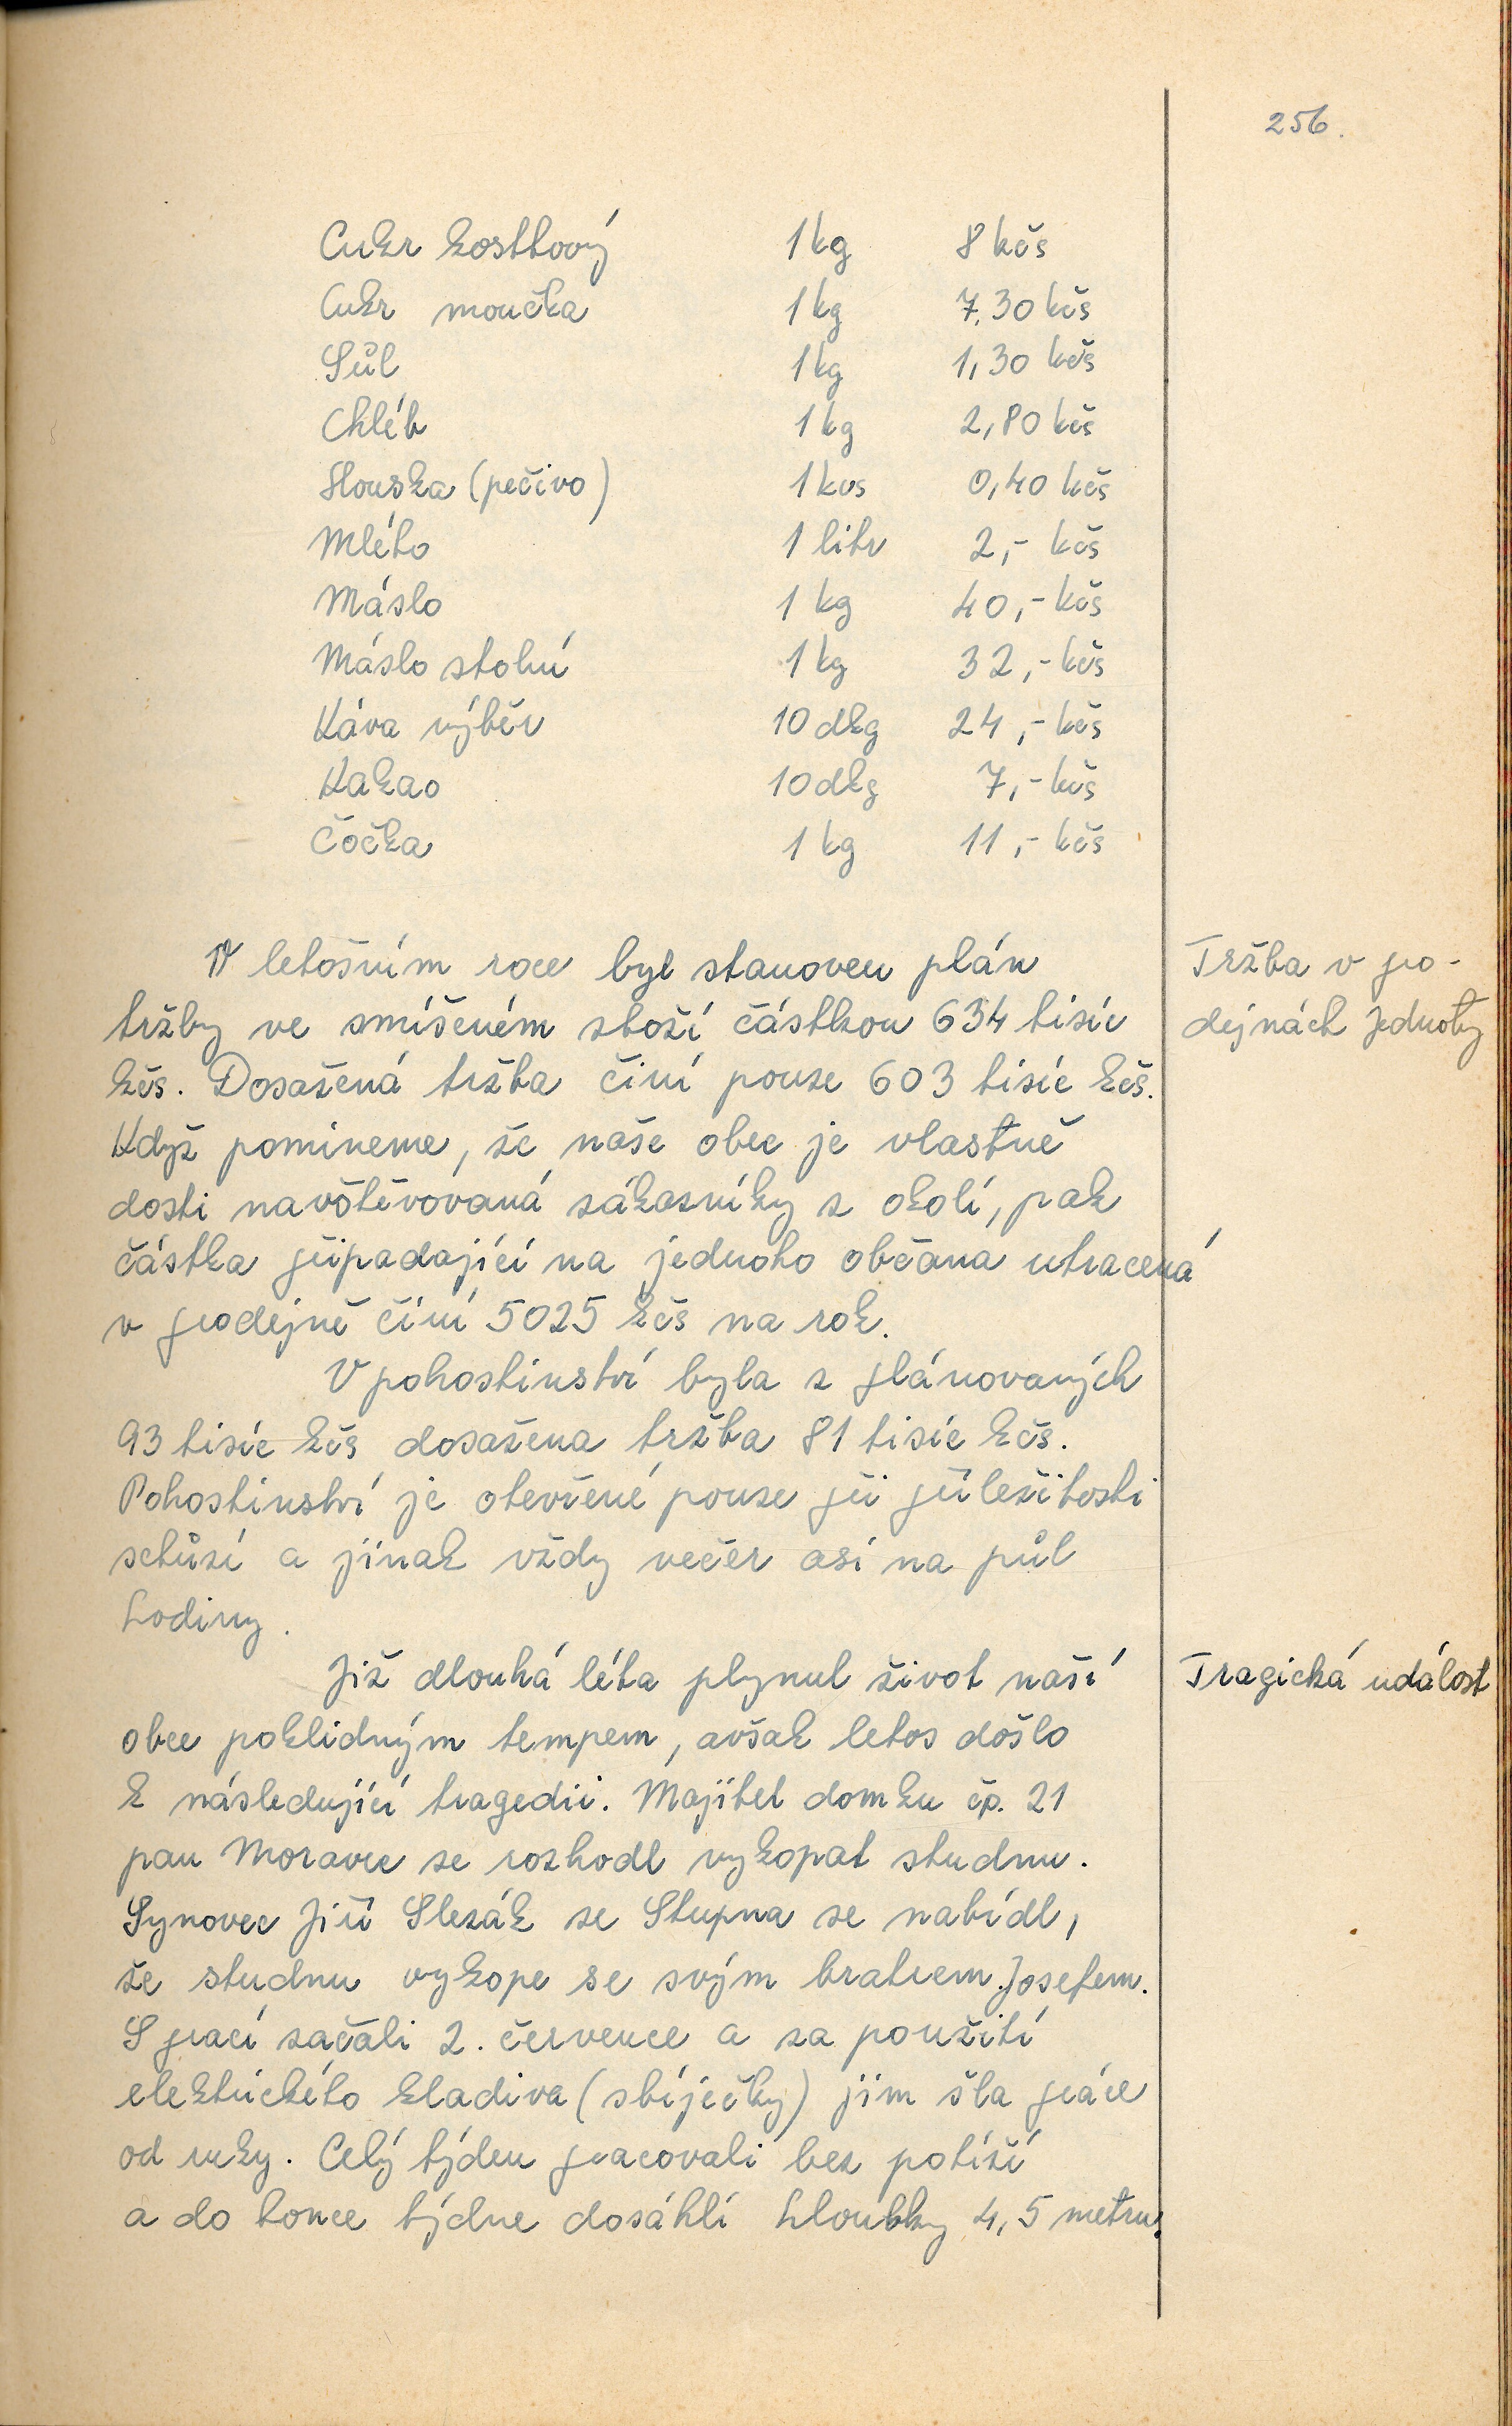 256.
Cukr kostkový 1 kg 8 kčs
Cukr moučka 1 kg 7,30 kčs
Sůl 1 kg 1,30 kčs
Chléb 1 kg 2,80 kčs
Houska (pečivo) 1 kus 0,40 kčs
Mléko 1 litr 2,- kčs
Máslo 1 kg 40,- kčs
Máslo stolní 1 kg 32,- kčs
Káva výběr 10 dkg 24,- kčs
Kakao 10 dkg 7,- kčs
Čočka 1 kg 11,- kčs
V letošním roce byl stanoven plán
tržby ve smíšeném zboží částkou 634 tisíc
kčs. Dosažená tržba činí pouze 603 tisíc kčs.
Když pomineme, že naše obec je vlastně
dosti navštěvovaná zákazníky z okolí, pak
částka připadající na jednoho občana utracená
v prodejně činí 5025 kčs na rok.
Tržba v pro-
dejnách Jednoty
V pohostinství byla z plánovaných
93 tisíc kčs dosažena tržba 81 tisíc kčs.
Pohostinství je otevřené pouze při příležitosti
schůzí a jinak vždy večer asi na půl
hodiny.
Již dlouhá léta plynul život naší
obce poklidným tempem, avšak letos došlo
k následující tragedii. Majitel domku čp. 21
pan Moravec se rozhodl vykopat studnu.
Synovec Jiří Slezák ze Stupna se nabídl,
že studnu vykope se svým bratrem Josefem.
S prací začali 2. července a za použití
elektrického kladiva (sbíječky) jim šla práce
od ruky. Celý týden pracovali bez potíží
a do konce týdne dosáhli hloubky 4,5 metru.
Tragická událost